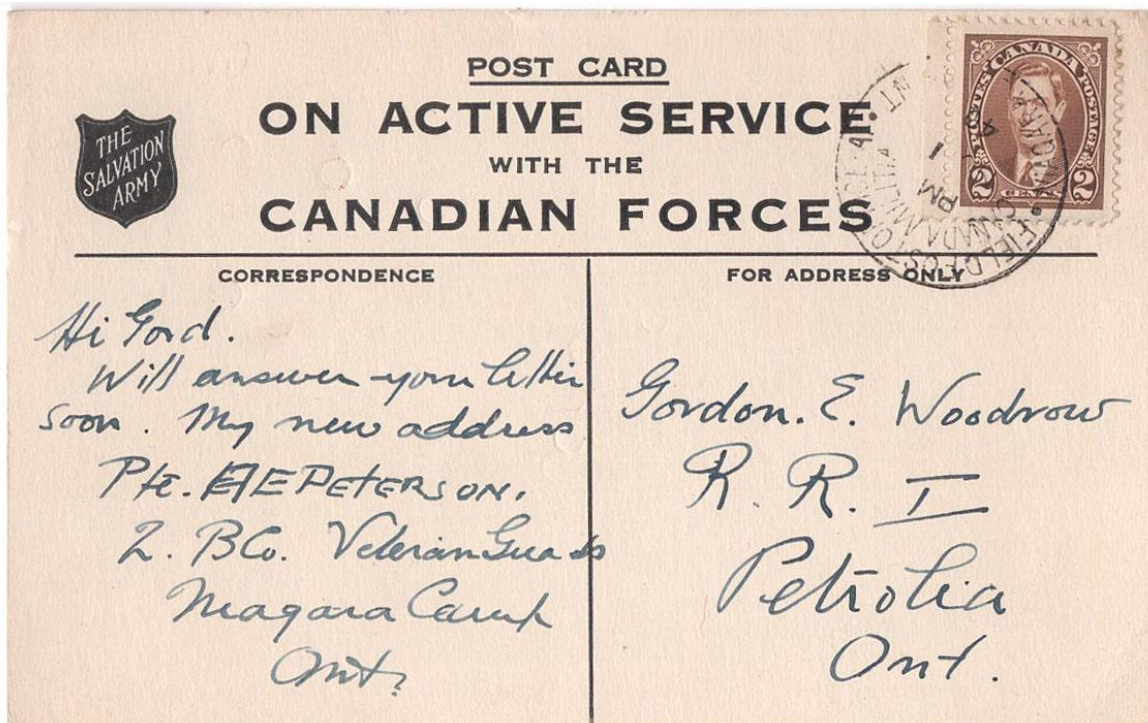 POST CARD
ON ACTIVE SERVICE
WITH THE
CANADIAN FORCES
THE
SALVATION
ARMY
POSTES CANADA POSTAGE
2 CENTS 2
FIELD POST OFFICE
CANADA MILITIA
PM
CORRESPONDENCE
Hi Gord.
Will answer your letter
soon. My new address
Pte. E PETERSON.
2. B Co. Veteran Guards
Niagara Camp
Ont.
FOR ADDRESS ONLY
Gordon. E. Woodrow
R. R. I
Petrolia
Ont.